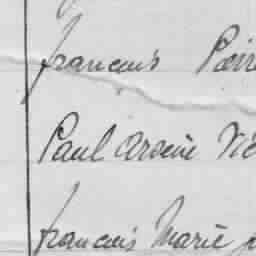 francois
Paul Arsène
francois Marie